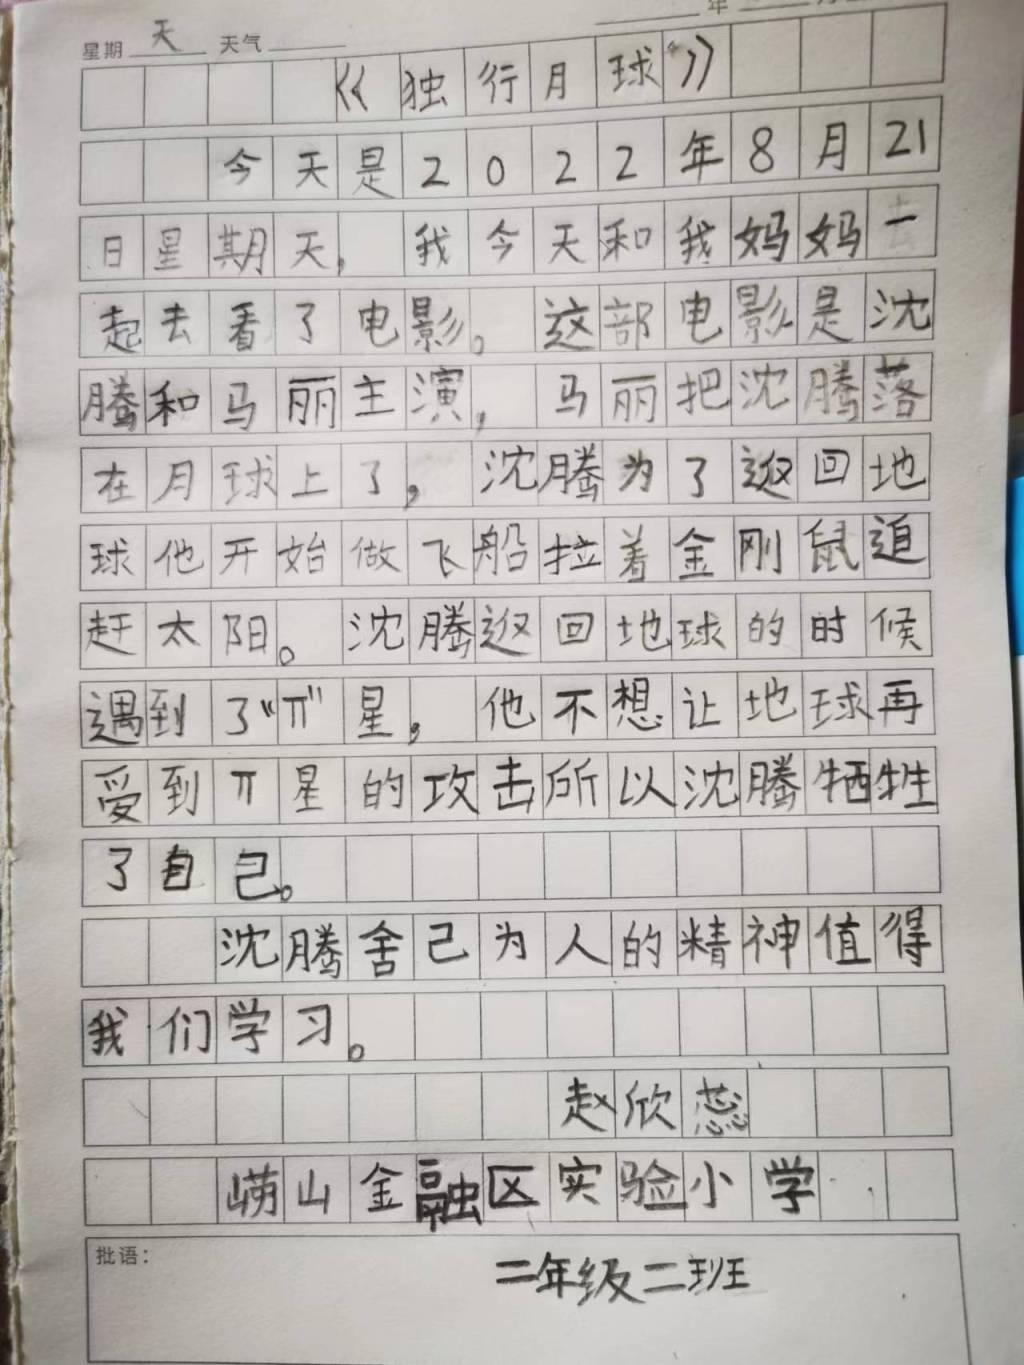 年
星期 天 天气
《独行月球》
今天是2022年8月21
日星期天，我今天和我妈妈一
起去看了电影。这部电影是沈
腾和马丽主演，马丽把沈腾落
在月球上了，沈腾为了返回地
球他开始做飞船拉着金刚鼠追
赶太阳。沈腾返回地球的时候
遇到了“π”星，他不想让地球再
受到π星的攻击所以沈腾牺牲
了自己。
沈腾舍己为人的精神值得
我们学习。
赵欣蕊
崂山金融区实验小学
批语：
二年级二班